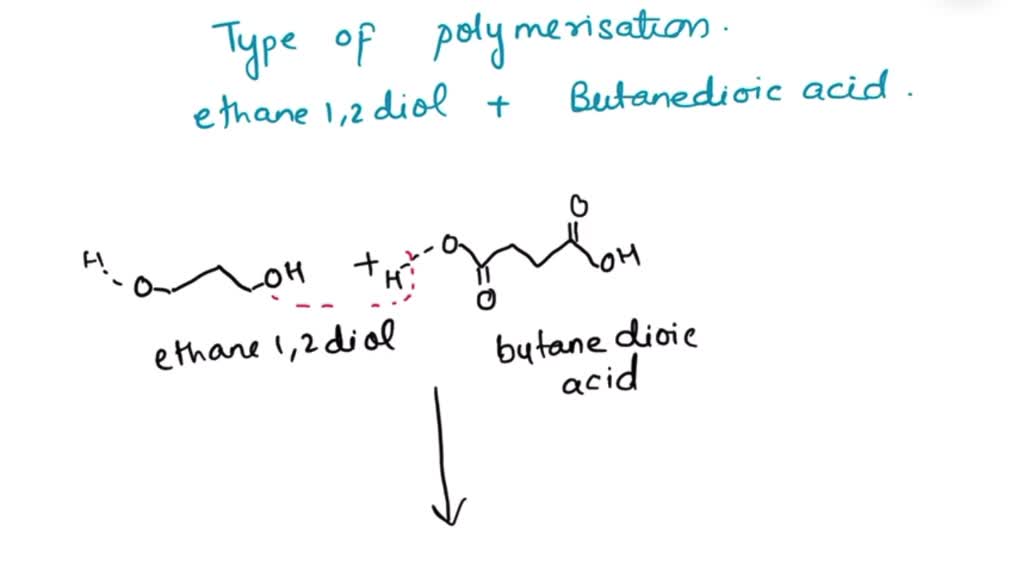 Type of polymerisation.
ethane 1,2 diol + Butanedioic acid.
O
H O OH + H O OH
O
ethane 1,2 diol butane dioic
acid